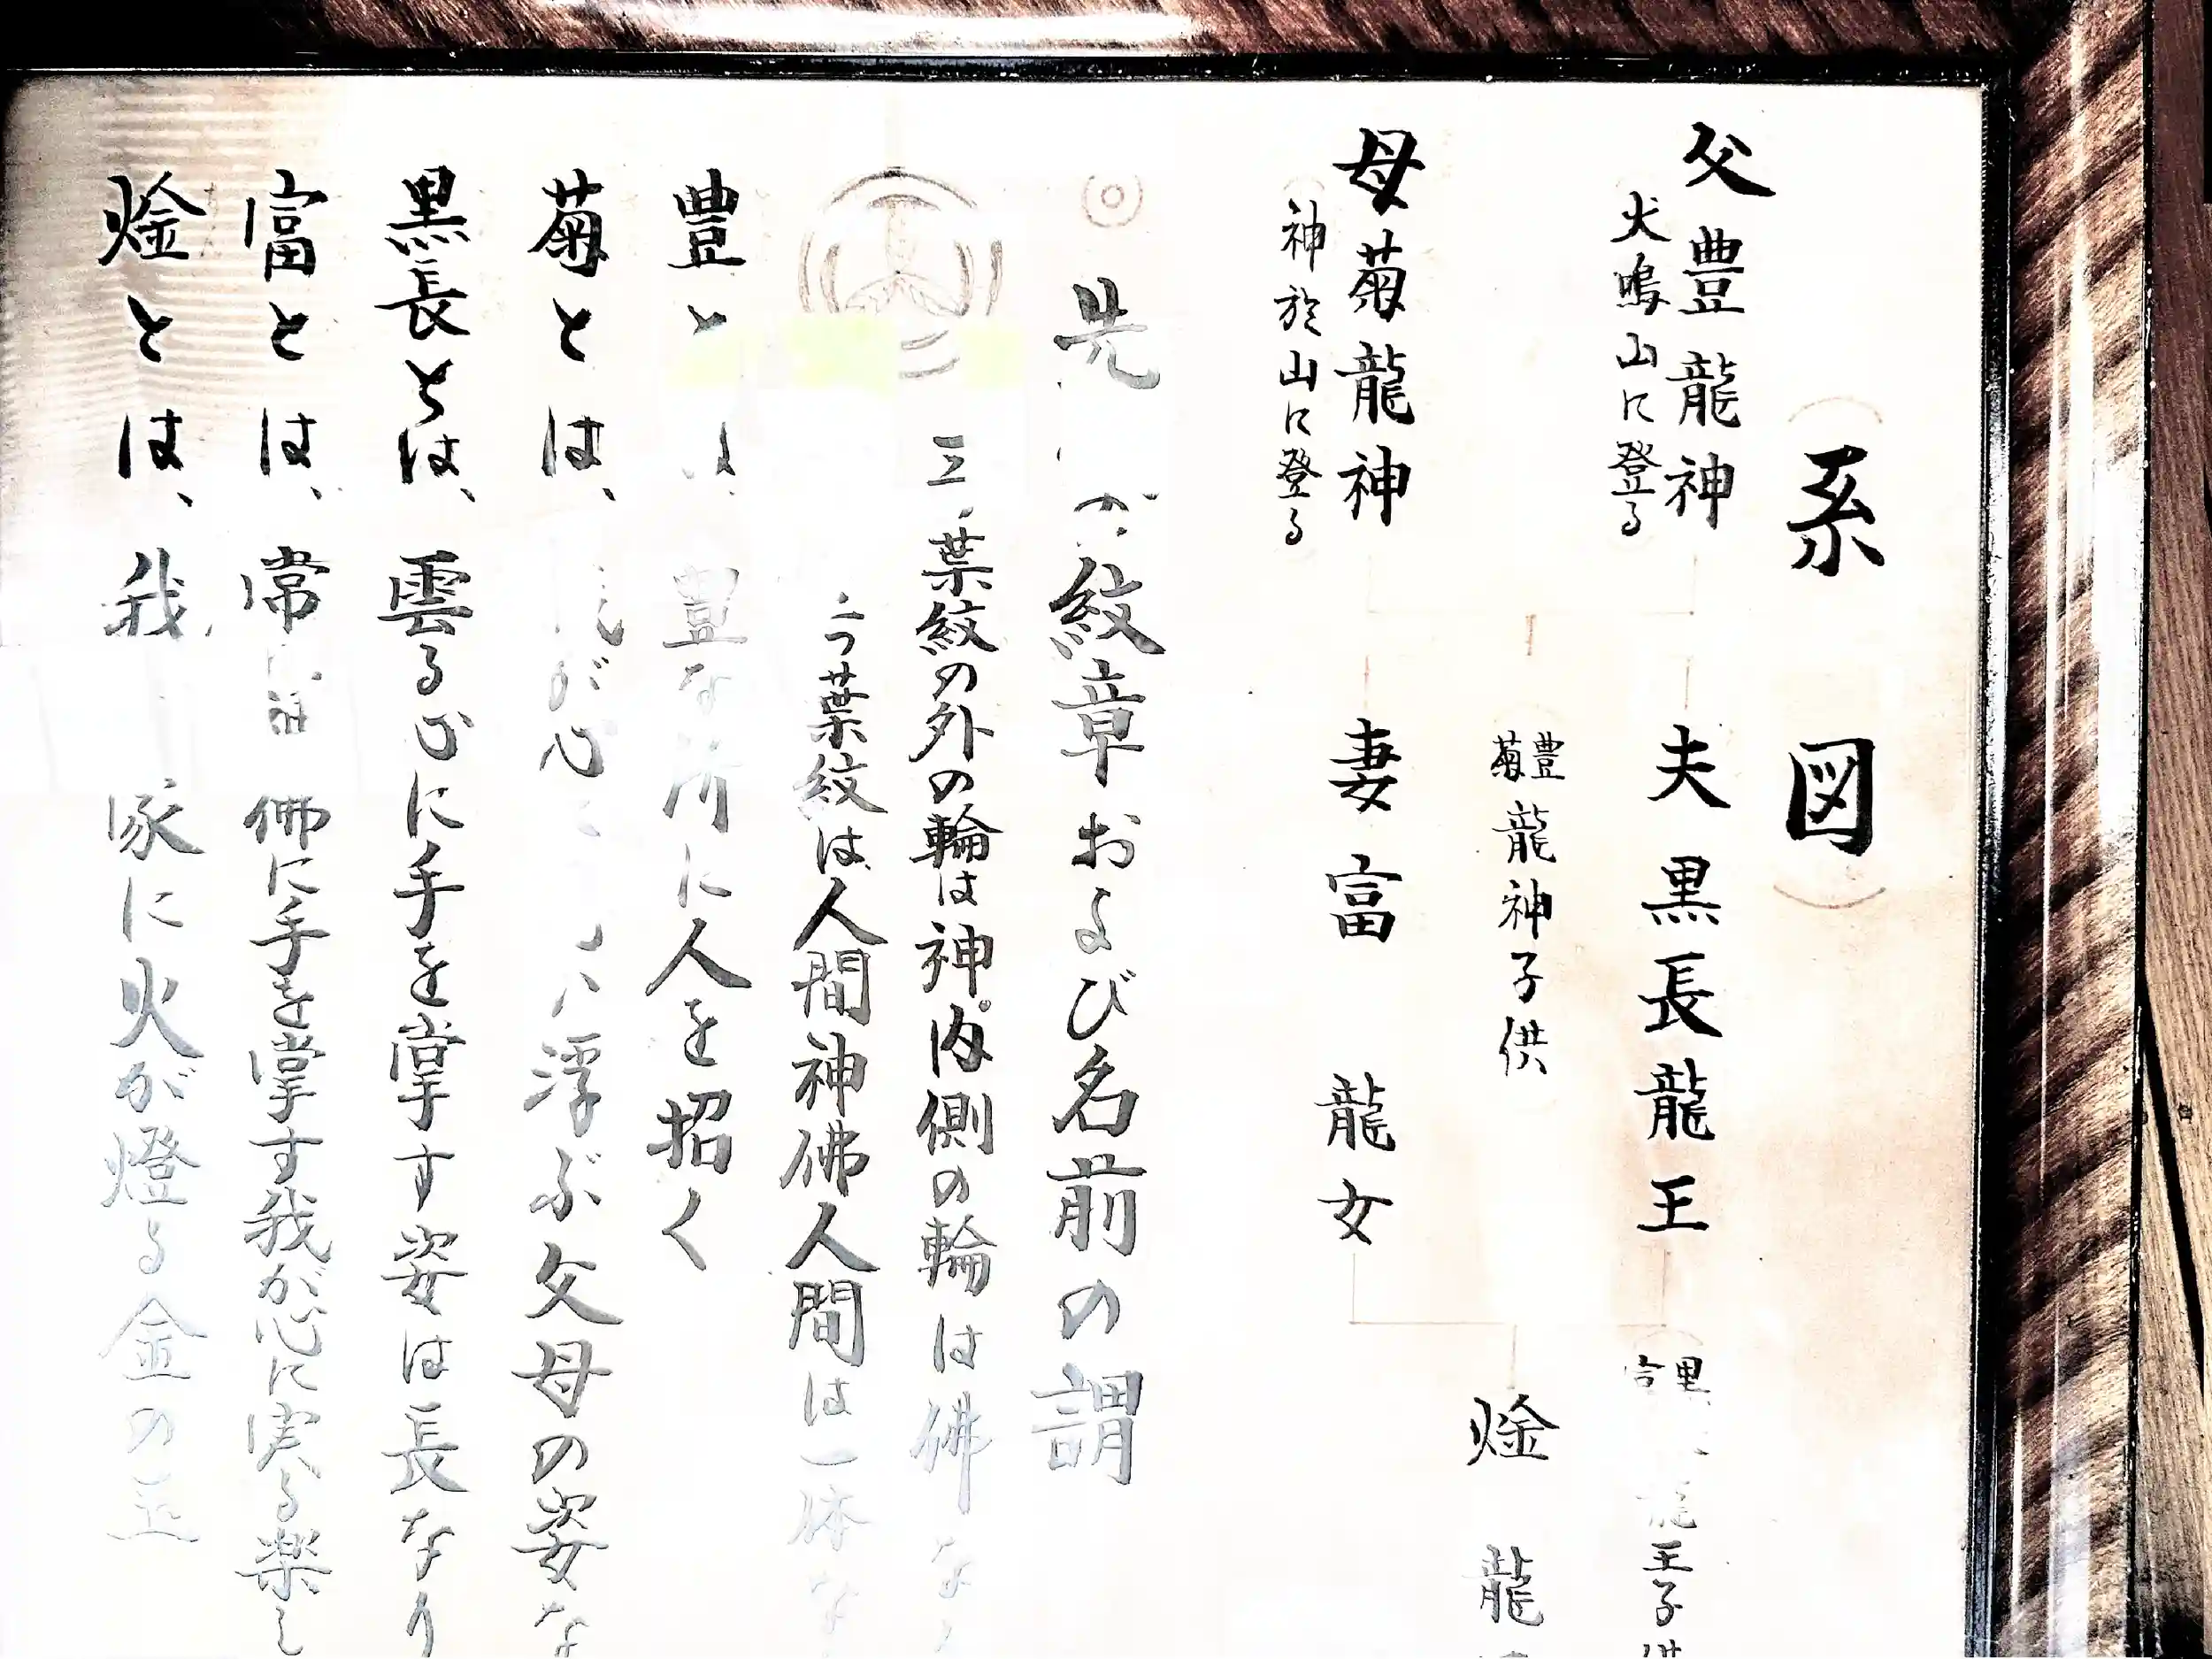 系図
父豊龍神
犬鳴山に登る
夫黒長龍王
豊菊龍神子供
龍王子
母菊龍神
神於山に登る
妻富龍女
龍
紋章および名前の謂
三葉紋の外の輪は神内側の輪は佛な
二つ葉紋は人間神佛人間は一体な
豊と 豊な所に人を招く
菊とは、 が心 浮ぶ父母の姿な
黒長とは、雲る心に手を掌す姿は長なり
富とは、常 佛に手を掌す我が心に実る楽し
とは、我 家に火が燈る金の玉